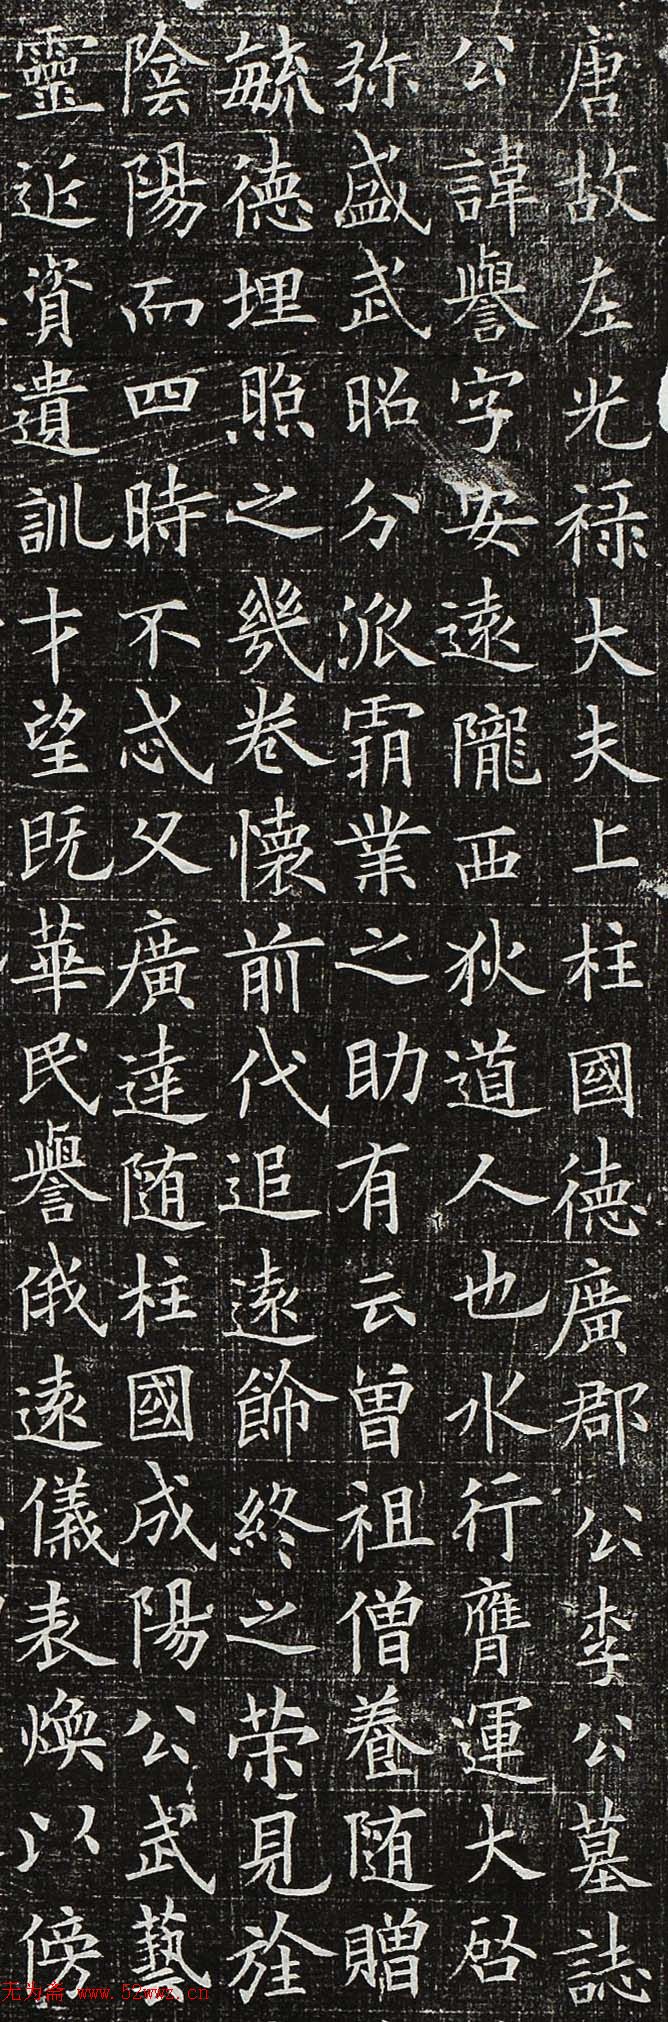 唐故左光禄大夫上柱國德廣郡公李公墓誌
公諱譽字安遠隴西狄道人也水行膺運大啓
弥盛武昭分派霸業之助有云曾祖僧養随贈
毓德埋照之幾卷懷前代追遠飾終之榮見旌
陰陽而四時不忒父廣達随柱國成陽公武藝
靈近資遺訓才望既華民譽俄遠儀表煥以傍
无为斋 www.52wwz.cn